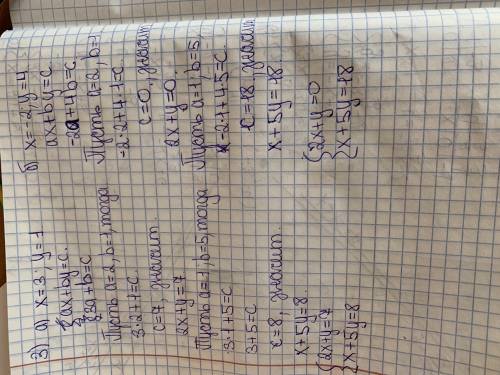 3) а) x=3; y=1
ax+by=c.
3a+b=c
Пусть a=2, b=1, тогда
3·2+1=c
c=7, значит
2x+y=7
Пусть a=1, b=5, тогда
3·1+5=c
3+5=c
c=8, значит.
x+5y=8.
{2x+y=7
{x+5y=8
б) x=-2; y=4
ax+by=c.
-2a+4b=c.
Пусть a=2, b=1
-2·2+4·1=c
c=0, значит
2x+y=0.
Пусть a=1, b=5,
-2·1+4·5=c
c=18, значит
x+5y=18
{2x+y=0
{x+5y=18